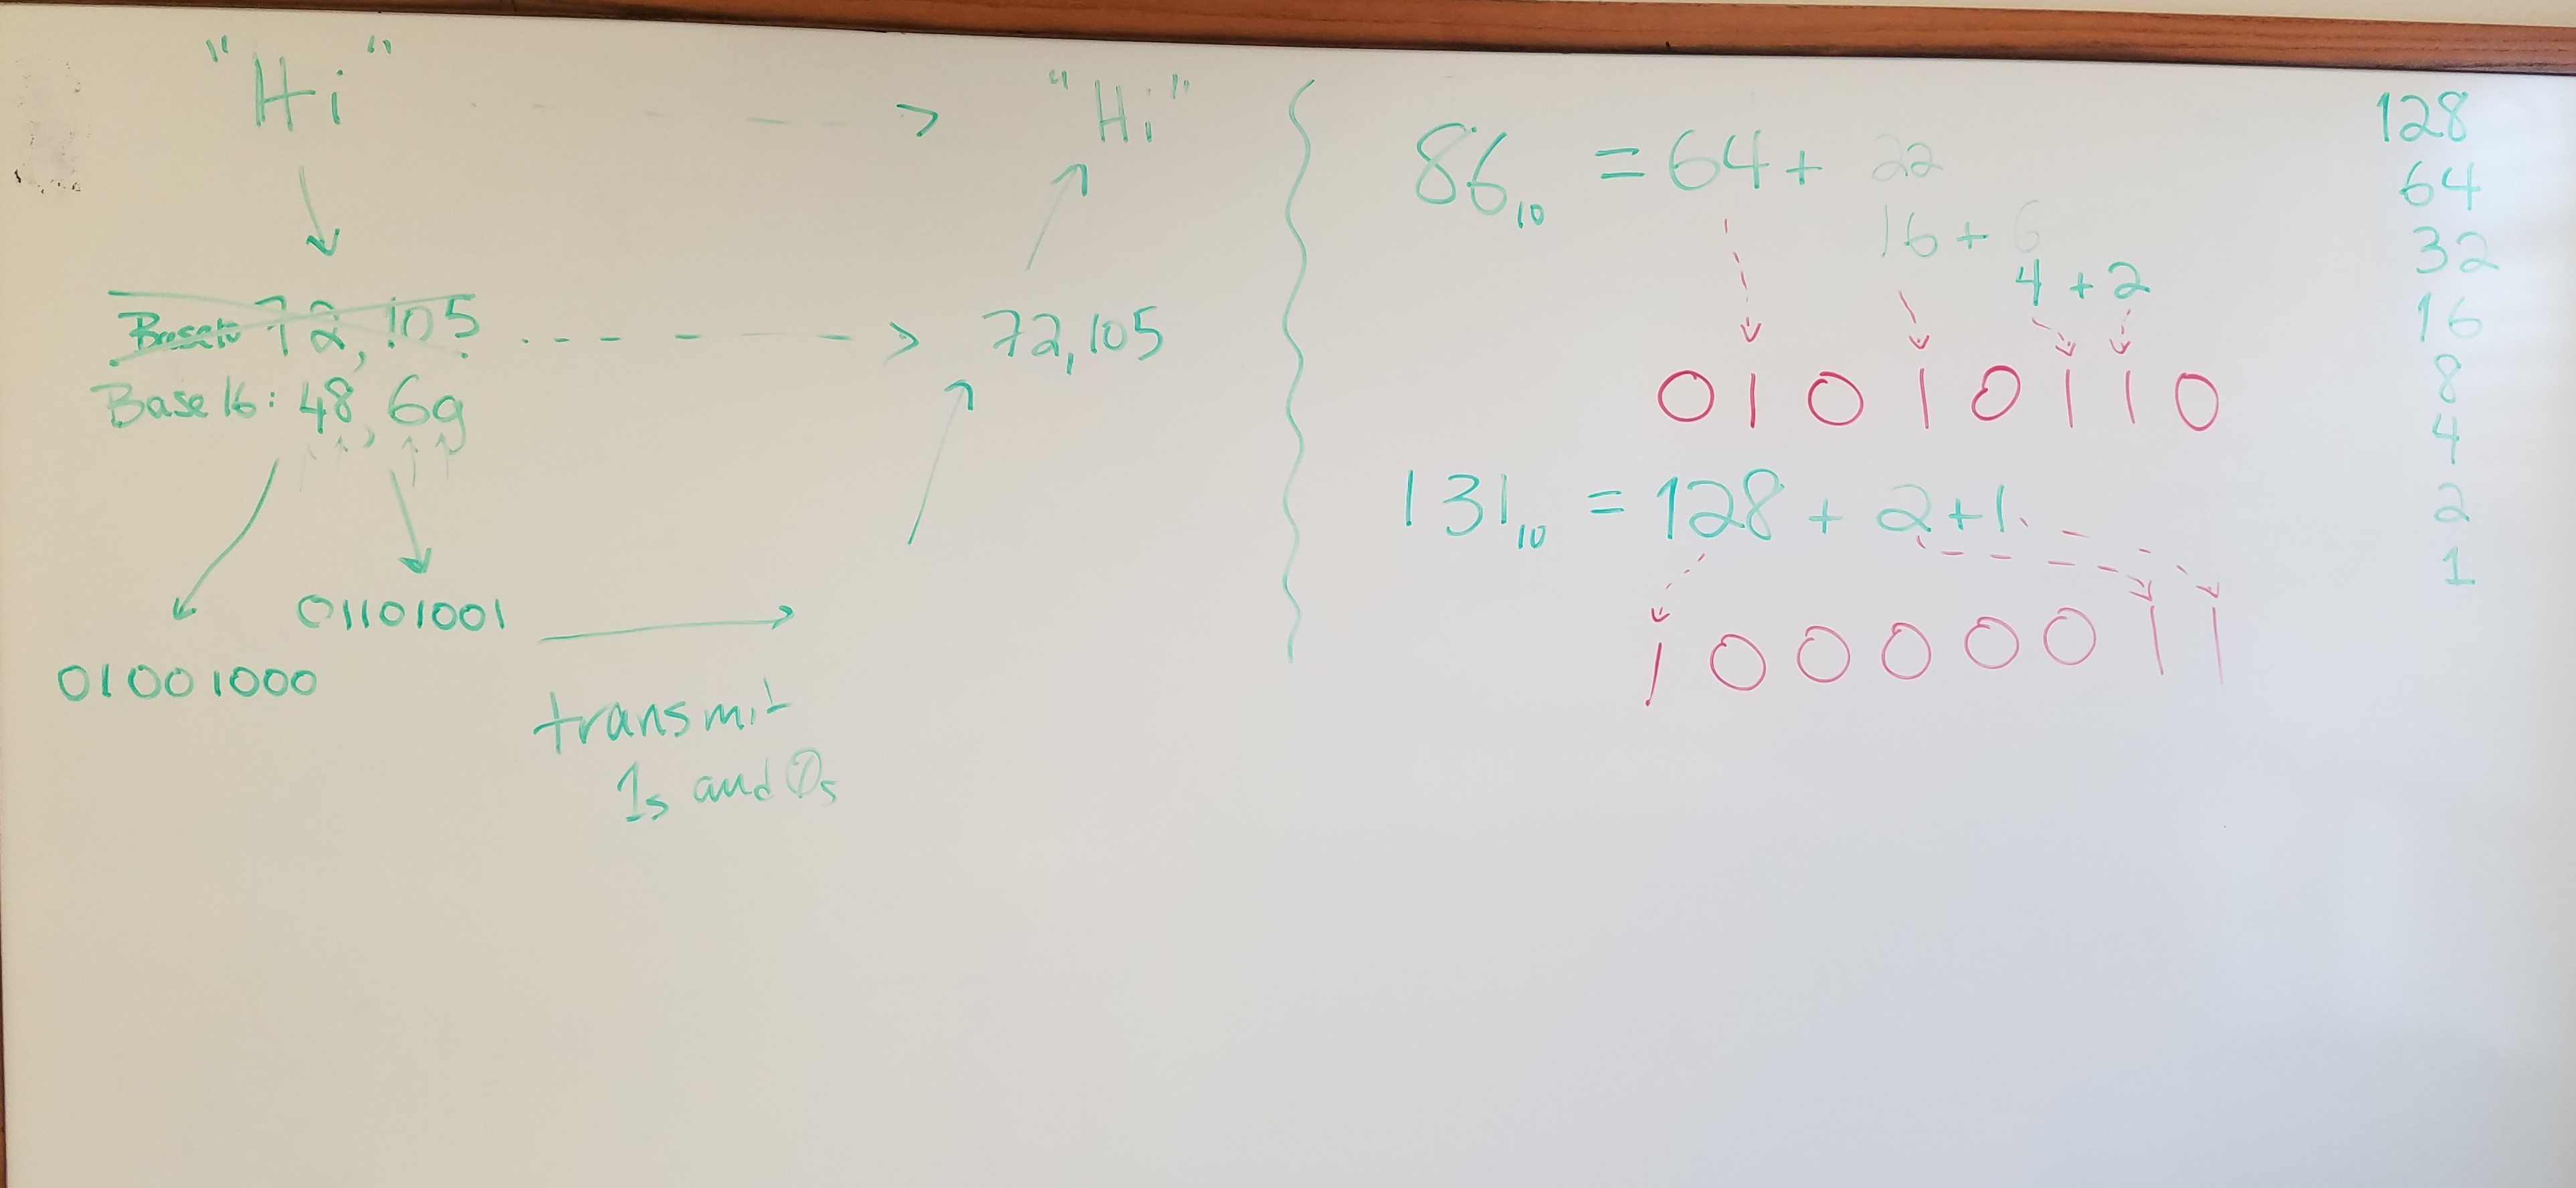 "Hi" > "Hi"
Base 10 72, 105 > 72, 105
Base 16: 48, 69
01101001
01001000
transmit
1s and 0s
86₁₀ = 64 + 22
16 + 6
4 + 2
0 1 0 1 0 1 1 0
131₁₀ = 128 + 2 + 1
1 0 0 0 0 0 1 1
128
64
32
16
8
4
2
1